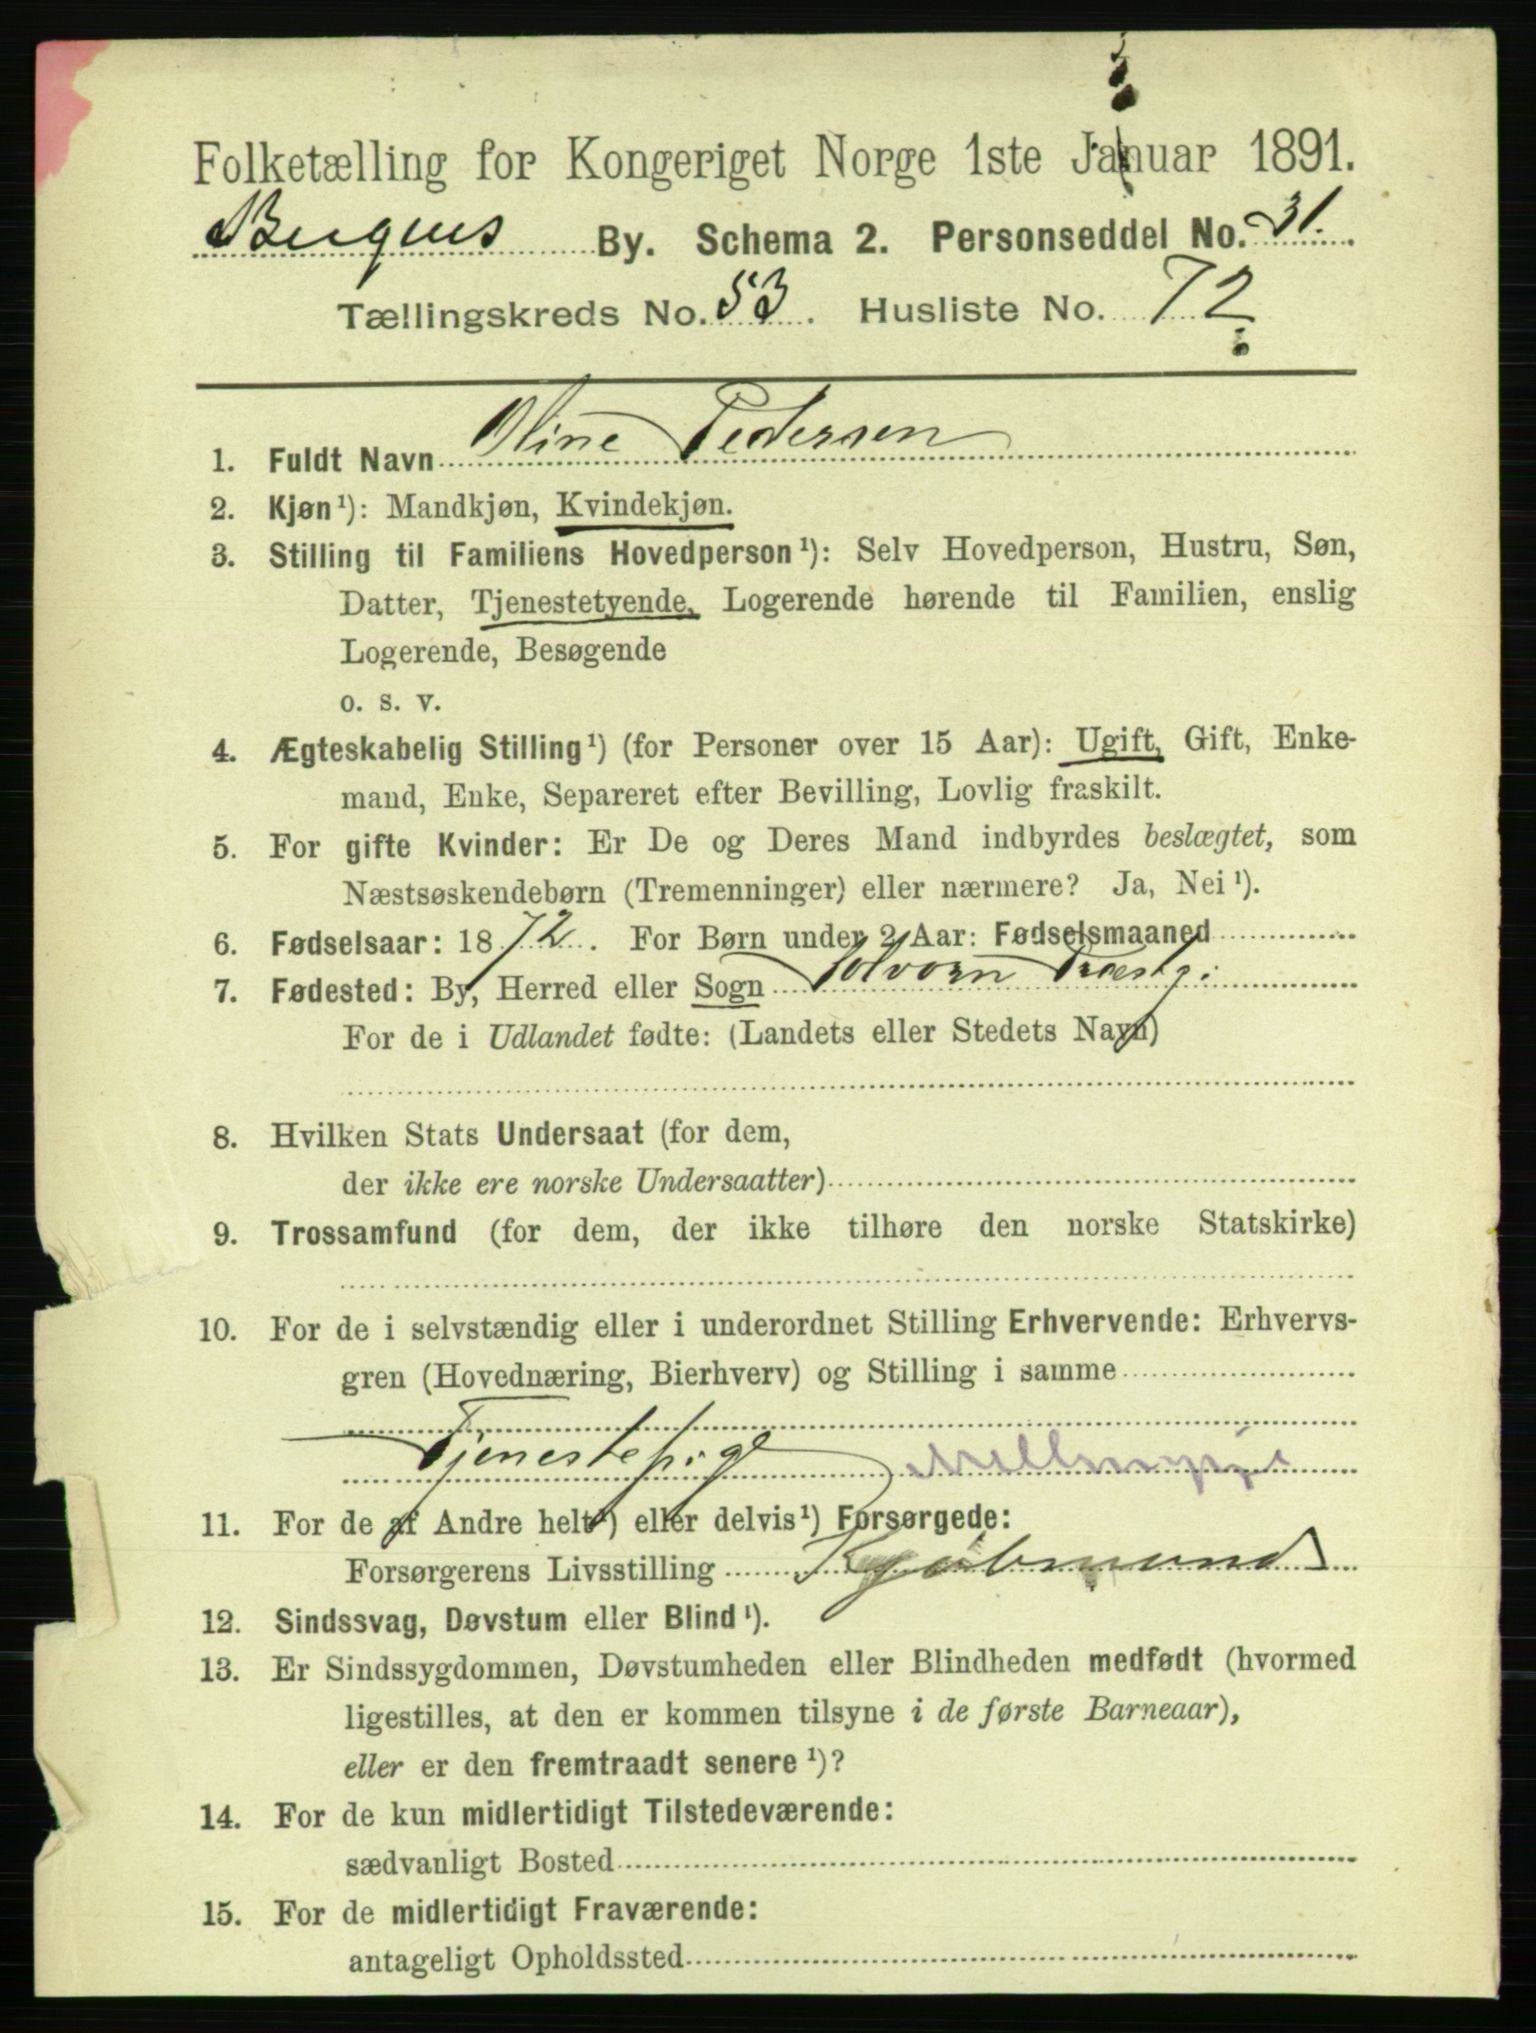 Folketælling for Kongeriget Norge 1ste Januar 1891.
Bergens By. Schema 2. Personseddel No. 31.
Tællingskreds No. 53. Husliste No. 72
1. Fuldt Navn Oline Pedersen
2. Kjøn¹): Mandkjøn, Kvindekjøn.
3. Stilling til Familiens Hovedperson¹): Selv Hovedperson, Hustru, Søn,
Datter, Tjenestetyende, Logerende hørende til Familien, enslig
Logerende, Besøgende
o. s. v.
4. Ægteskabelig Stilling¹) (for Personer over 15 Aar): Ugift, Gift, Enke-
mand, Enke, Separeret efter Bevilling, Lovlig fraskilt.
5. For gifte Kvinder: Er De og Deres Mand indbyrdes beslægtet, som
Næstsøskendebørn (Tremenninger) eller nærmere? Ja, Nei¹).
6. Fødselsaar: 1872. For Børn under 2 Aar: Fødselsmaaned
7. Fødested: By, Herred eller Sogn Solvorn Præstg:
For de i Udlandet fødte: (Landets eller Stedets Navn)
8. Hvilken Stats Undersaat (for dem,
der ikke ere norske Undersaatter)
9. Trossamfund (for dem, der ikke tilhøre den norske Statskirke)
10. For de i selvstændig eller i underordnet Stilling Erhvervende: Erhvervs-
gren (Hovednæring, Bierhverv) og Stilling i samme
Tjenestepige
11. For de af Andre helt¹) eller delvis¹) Forsørgede:
Forsørgerens Livsstilling Kjøbmand
12. Sindssvag, Døvstum eller Blind¹).
13. Er Sindssygdommen, Døvstumheden eller Blindheden medfødt (hvormed
ligestilles, at den er kommen tilsyne i de første Barneaar),
eller er den fremtraadt senere¹)?
14. For de kun midlertidigt Tilstedeværende:
sædvanligt Bosted
15. For de midlertidigt Fraværende:
antageligt Opholdssted